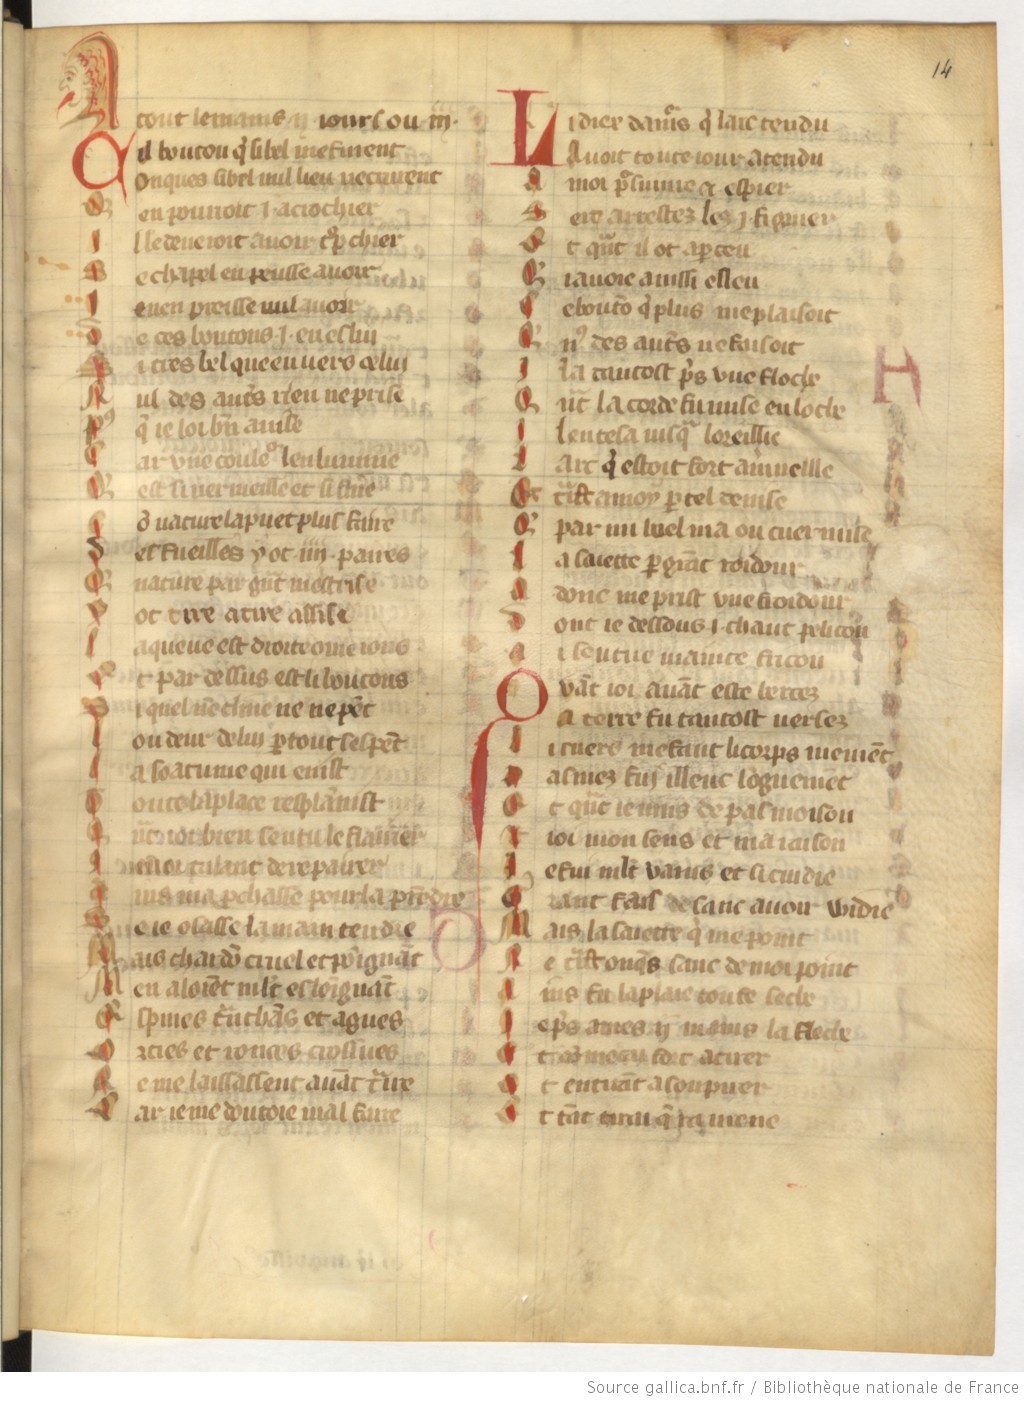 14
A tout le mains ii iours ou iii.
Cil bouton q̃ si bel me furent
Onques si bel nul lieu ne crurent
Q en pourroit .i. acrochier
I l le deveroit avoir tͦp chier
S e chapel en peusse avoir
I e nen preisse nul avoir
D e ces boutons .i. en eslui
T res bel que envers celui
N ul des aut̃s rien ne prise
P9 q̃ ie loi bn̄ avise
C ar vne couleᵒ lenlumine
Q est si vermeille et si fine
9 nature la puet plus faire
D es fueilles y ot .iiii. paires
Q nature par gñt mestrise
Y ot tire a tire assise
L a queue est droite 9me ions
E t par dessus est li boutons
S i quel ne cline ne ne pẽt
L oudeur de lui p tout sespẽt
L a soatume qui en ist
T oute la place resplanist
Q ñt ioi bien sentu le flairier
I e noi talant de repairer
A ins ma pchasse pour la prẽdre
S e ie osasse la main tendre
M ais chardõ cruel et poignãt
M en aloiẽt mlt esloignãt
E spines trenchãs et agues
O rties et ronces crossues
N e me laissassent avãt traire
C ar ie me doutoie mal faire
L i diex damͦrs q̃ larc tendu
Avoit toute iour atendu
A moi p̃sivire et espier
S ert arrestez les .i. figuier
E t qũt il ot apceu
Q iavoie aussi esleu
C e boutõ q̃ plus me plaisoit
Q n9 des aut̃s ne faisoit
I l a tantost p̃s vne floche
Q ñt la corde fu mise en loche
I l entesa iusq̃ loreillie
L arc q̃ estoit fort a mveille
Et traist a moy p tel devise
Q par mi luel ma ou cuer mise
L a saiette p grãt roidour
A donc me prist vne froidour
D ont ie dessous .i. chaut peliçon
A i sentue mainte friçon
Qvãt ioi avãt este bercez
A terre fu tantost versez
L i cuers me faut li corps me mẽt
P asmez fui illenc lõguemẽt
E t qũt ie vins de pasmoison
E t ioi mon sens et ma raison
I e fui mlt vains et si cuidie
G rant fais de sanc avoir widie
M ais la saiette q̃ me point
N e traist onq̃s sanc de moi point
A ins fu la plaie toute seche
I e p̃s a mes ii mains la fleche
E t cõmencai fort a tirer
E t en tirãt a soupirer
E t tãt tirai q̃ ia mene
Source gallica.bnf.fr / Bibliothèque nationale de France